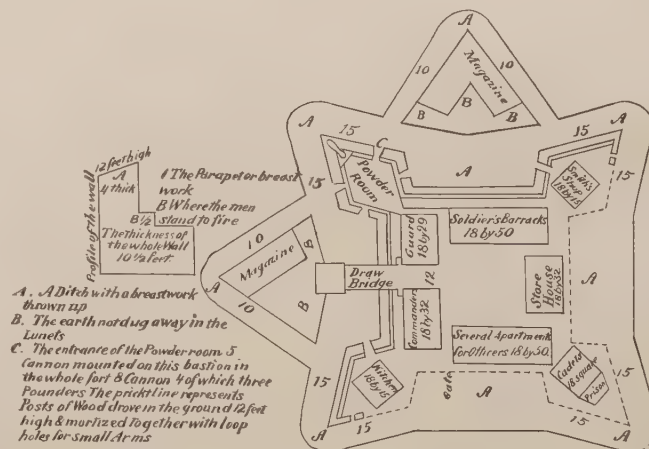 A
10
10
Magazine
B
B
B
A
15
C
15
A
15
Powder
Room
A
Smith's
Shop
18 by 15
15
12 feet high
A
4 thick
B ½
The thickness of
the whole Wall
10 ½ feet.
Profile of the wall
1 The Parapet or breast
work
B Where the men
stand to fire
10
B
Magazine
A
B
10
Guard
18 by 29
Soldier's Barracks
18 by 50
Draw
Bridge
12
Store
House
18 by 32
A
Commanders
18 by 32
Several Apartments
for Officers 18 by 50.
Kitchen
18 by 15
15
15
A
Gate
A
Cadets
18 square
Prison
15
15
A
A. A Ditch with a breastwork
thrown up
B. The earth not dug away in the
Lunets
C. The entrance of the Powder room 5
Cannon mounted on this bastion in
the whole fort 8 Cannon 4 of which three
Pounders The prickt line represents
Posts of Wood drove in the ground 12 feet
high & mortized Together with loop
holes for small Arms